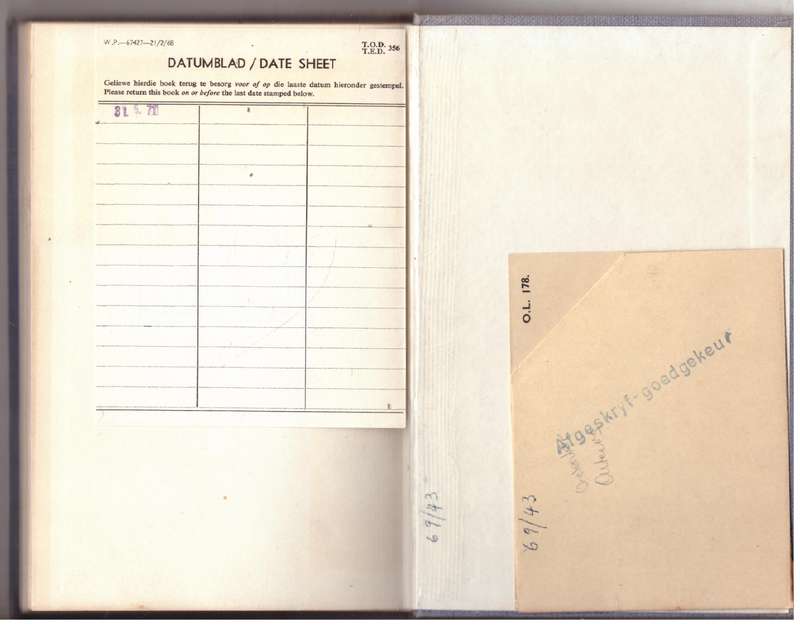 W.P.—67427—21/2/68
T.O.D. 356
T.E.D.
DATUMBLAD / DATE SHEET
Geliewe hierdie boek terug te besorg voor of op die laaste datum hieronder gestempel.
Please return this book on or before the last date stamped below.
O.L. 178.
Afgeskryf-goedgekeur
69/43
69/43